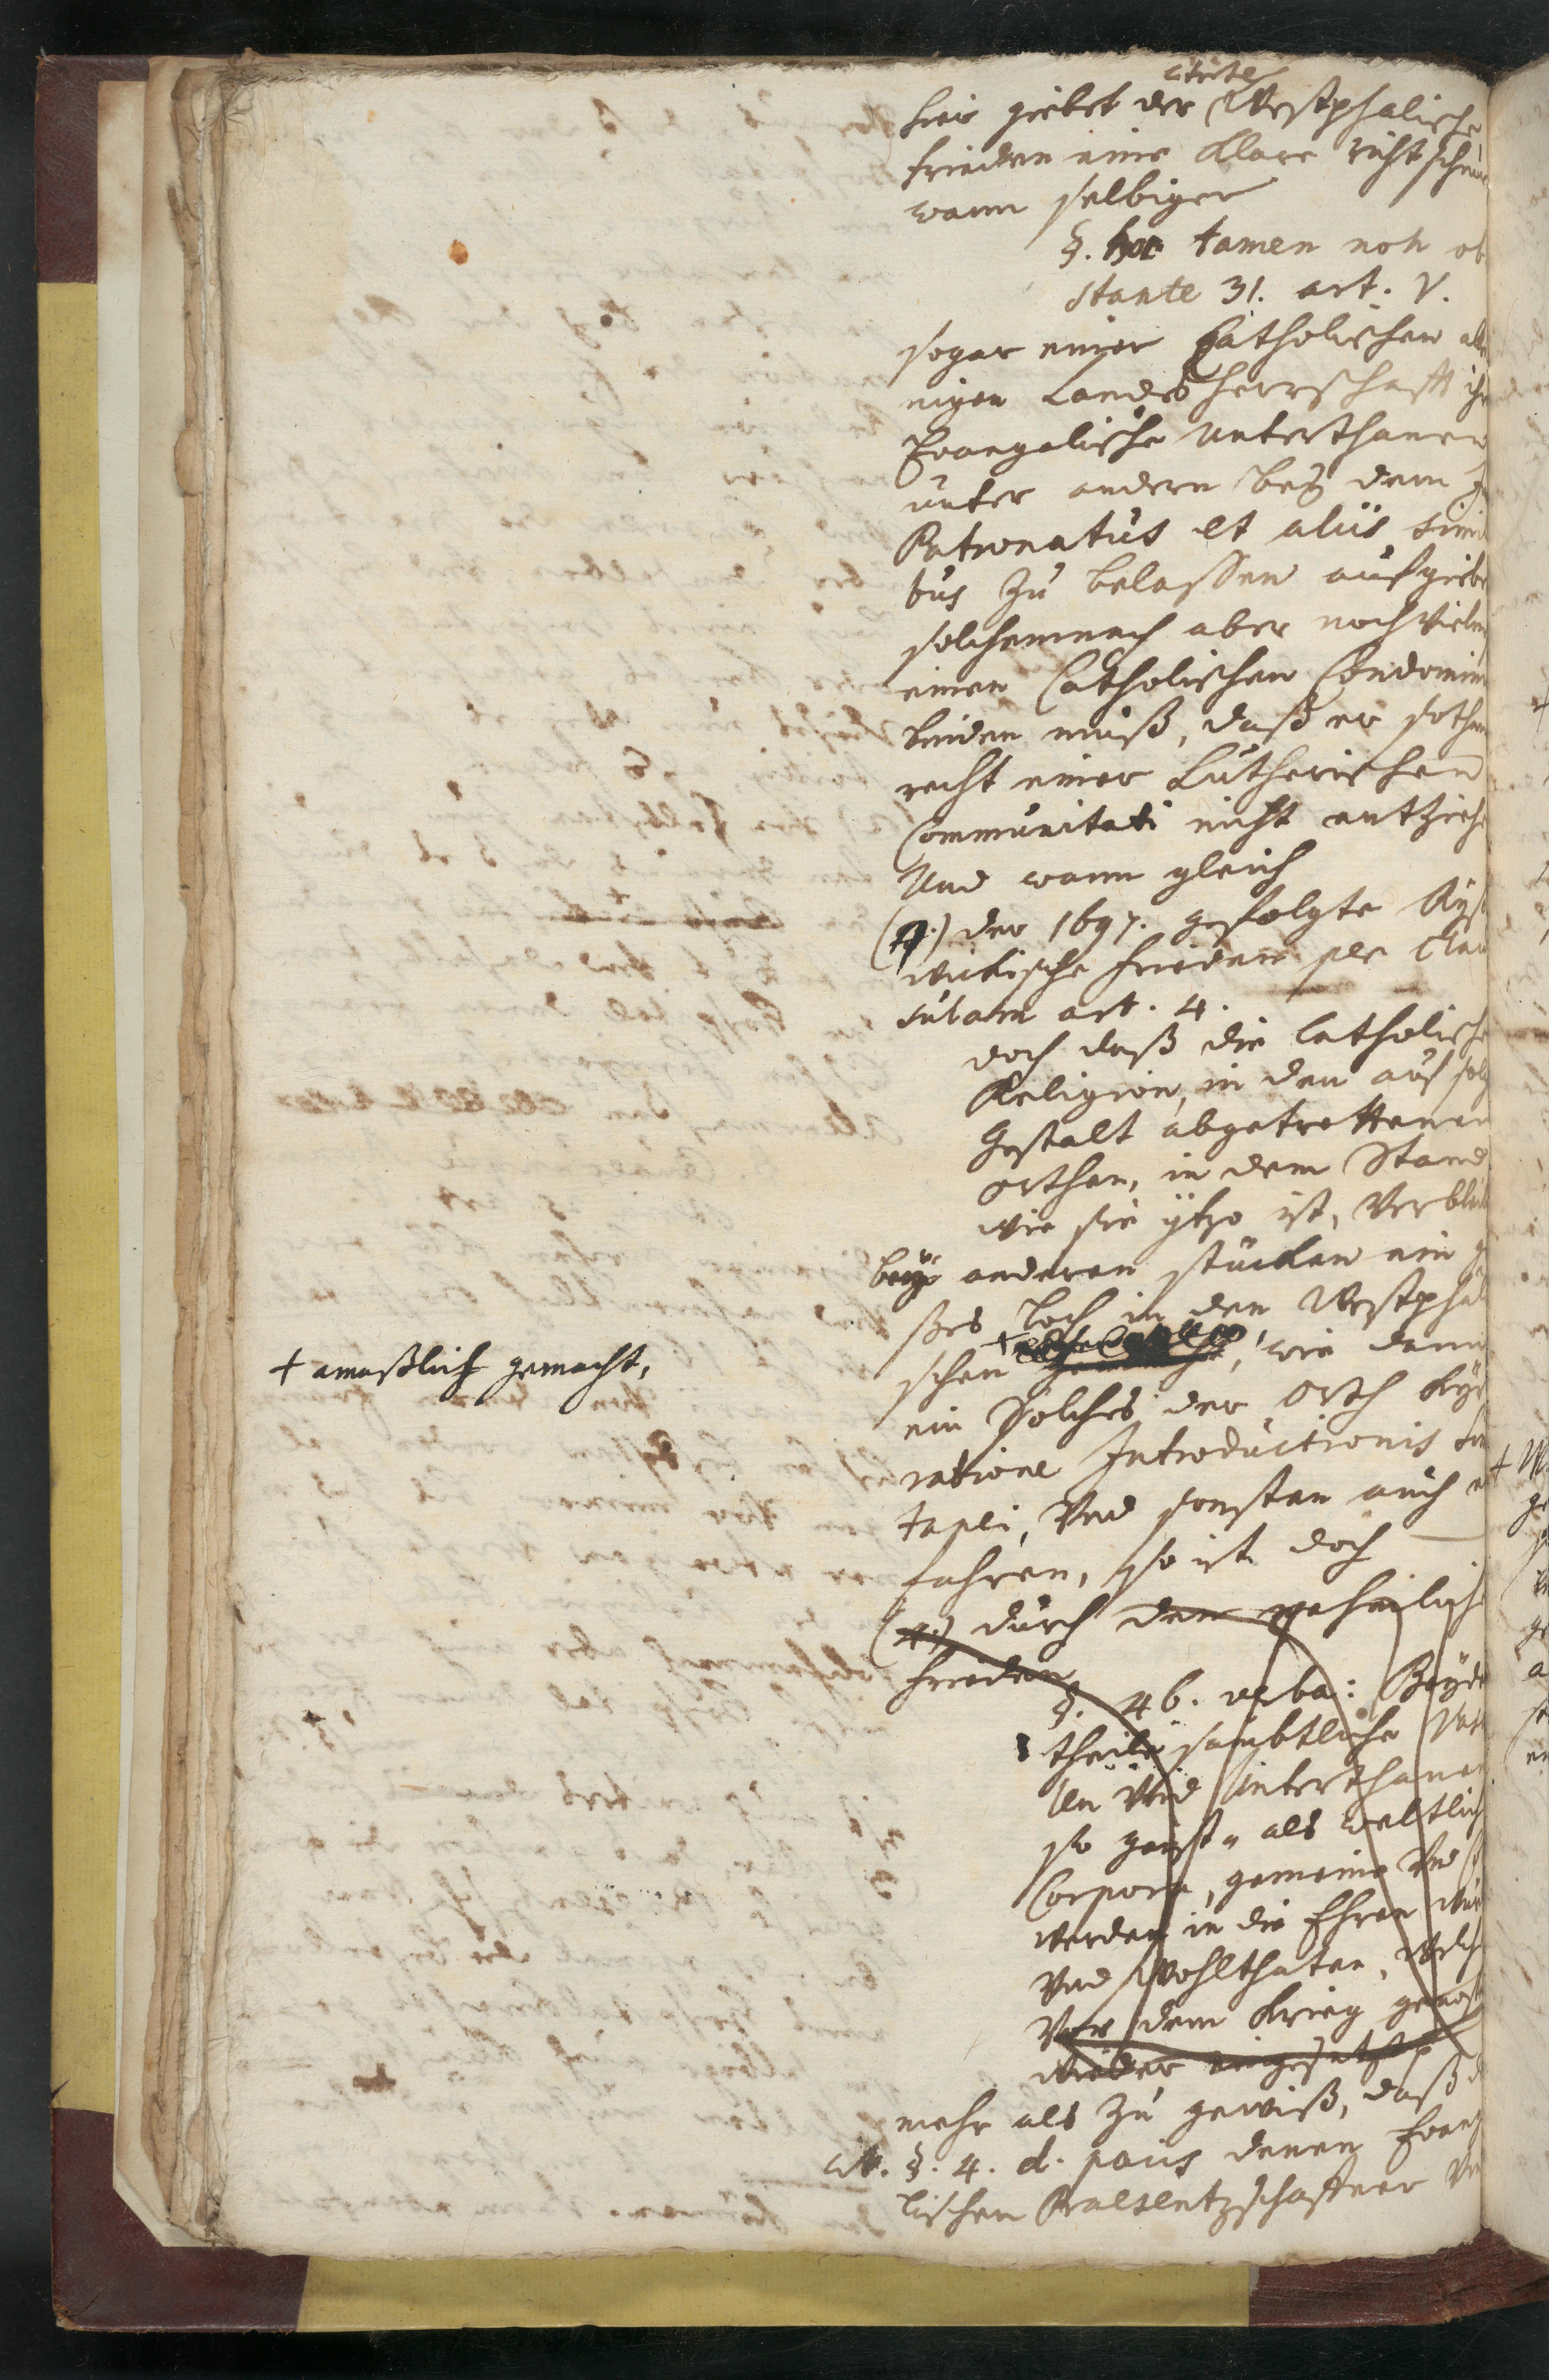 citirte
hier giebet der Westphalische
frieden eine klare richtschnu
wann selbiger
§. hoc tamen non ob
stante 31. art. V.
sogar einer Catholischen all
nigen Landsherrschafft ihr
Evangelische Unterthanen
unter andern bey dem
Patronatus et aliis simi
bus zu belassen aufgiebt
solchemnach aber noch vielm
einen Catholischen Condomin
binden muß, daß er sothan
recht einer Lutherischen
Communitati nicht entziehe
Und wann gleich
der 1697. gefolgte Ryß
wickische frieden per Clau
sulam art. 4.
doch daß die Catholische
Religion, in den auf solch
Gestalt abgetrettenen
orthen, in dem Stand
wie sie ytzo ist, Verbleib
bey anderen stücken ein g
ßes Loch in den Westphäli
schen + wie dann
+ amaßlich gemacht,
ein Solches der orth
ratione Introductionis Sim
tanei, Und sonsten auch er
fahren, so ist doch
(4.) durch den
frieden
§. 46. verba: Beyder
theile sambtliche Vas
len Und Unterthanen
so geist- als weltlich
Corpora, gemeine Und
werden in die Ehren Wür
Und Wohlthaten, Welche
Vor dem Krieg genoß
wieder eingesetzt
mehr als zu gewiß, daß d
cit. §. 4. d. pacis denen Evang
lischen Praesentzschaffner Un